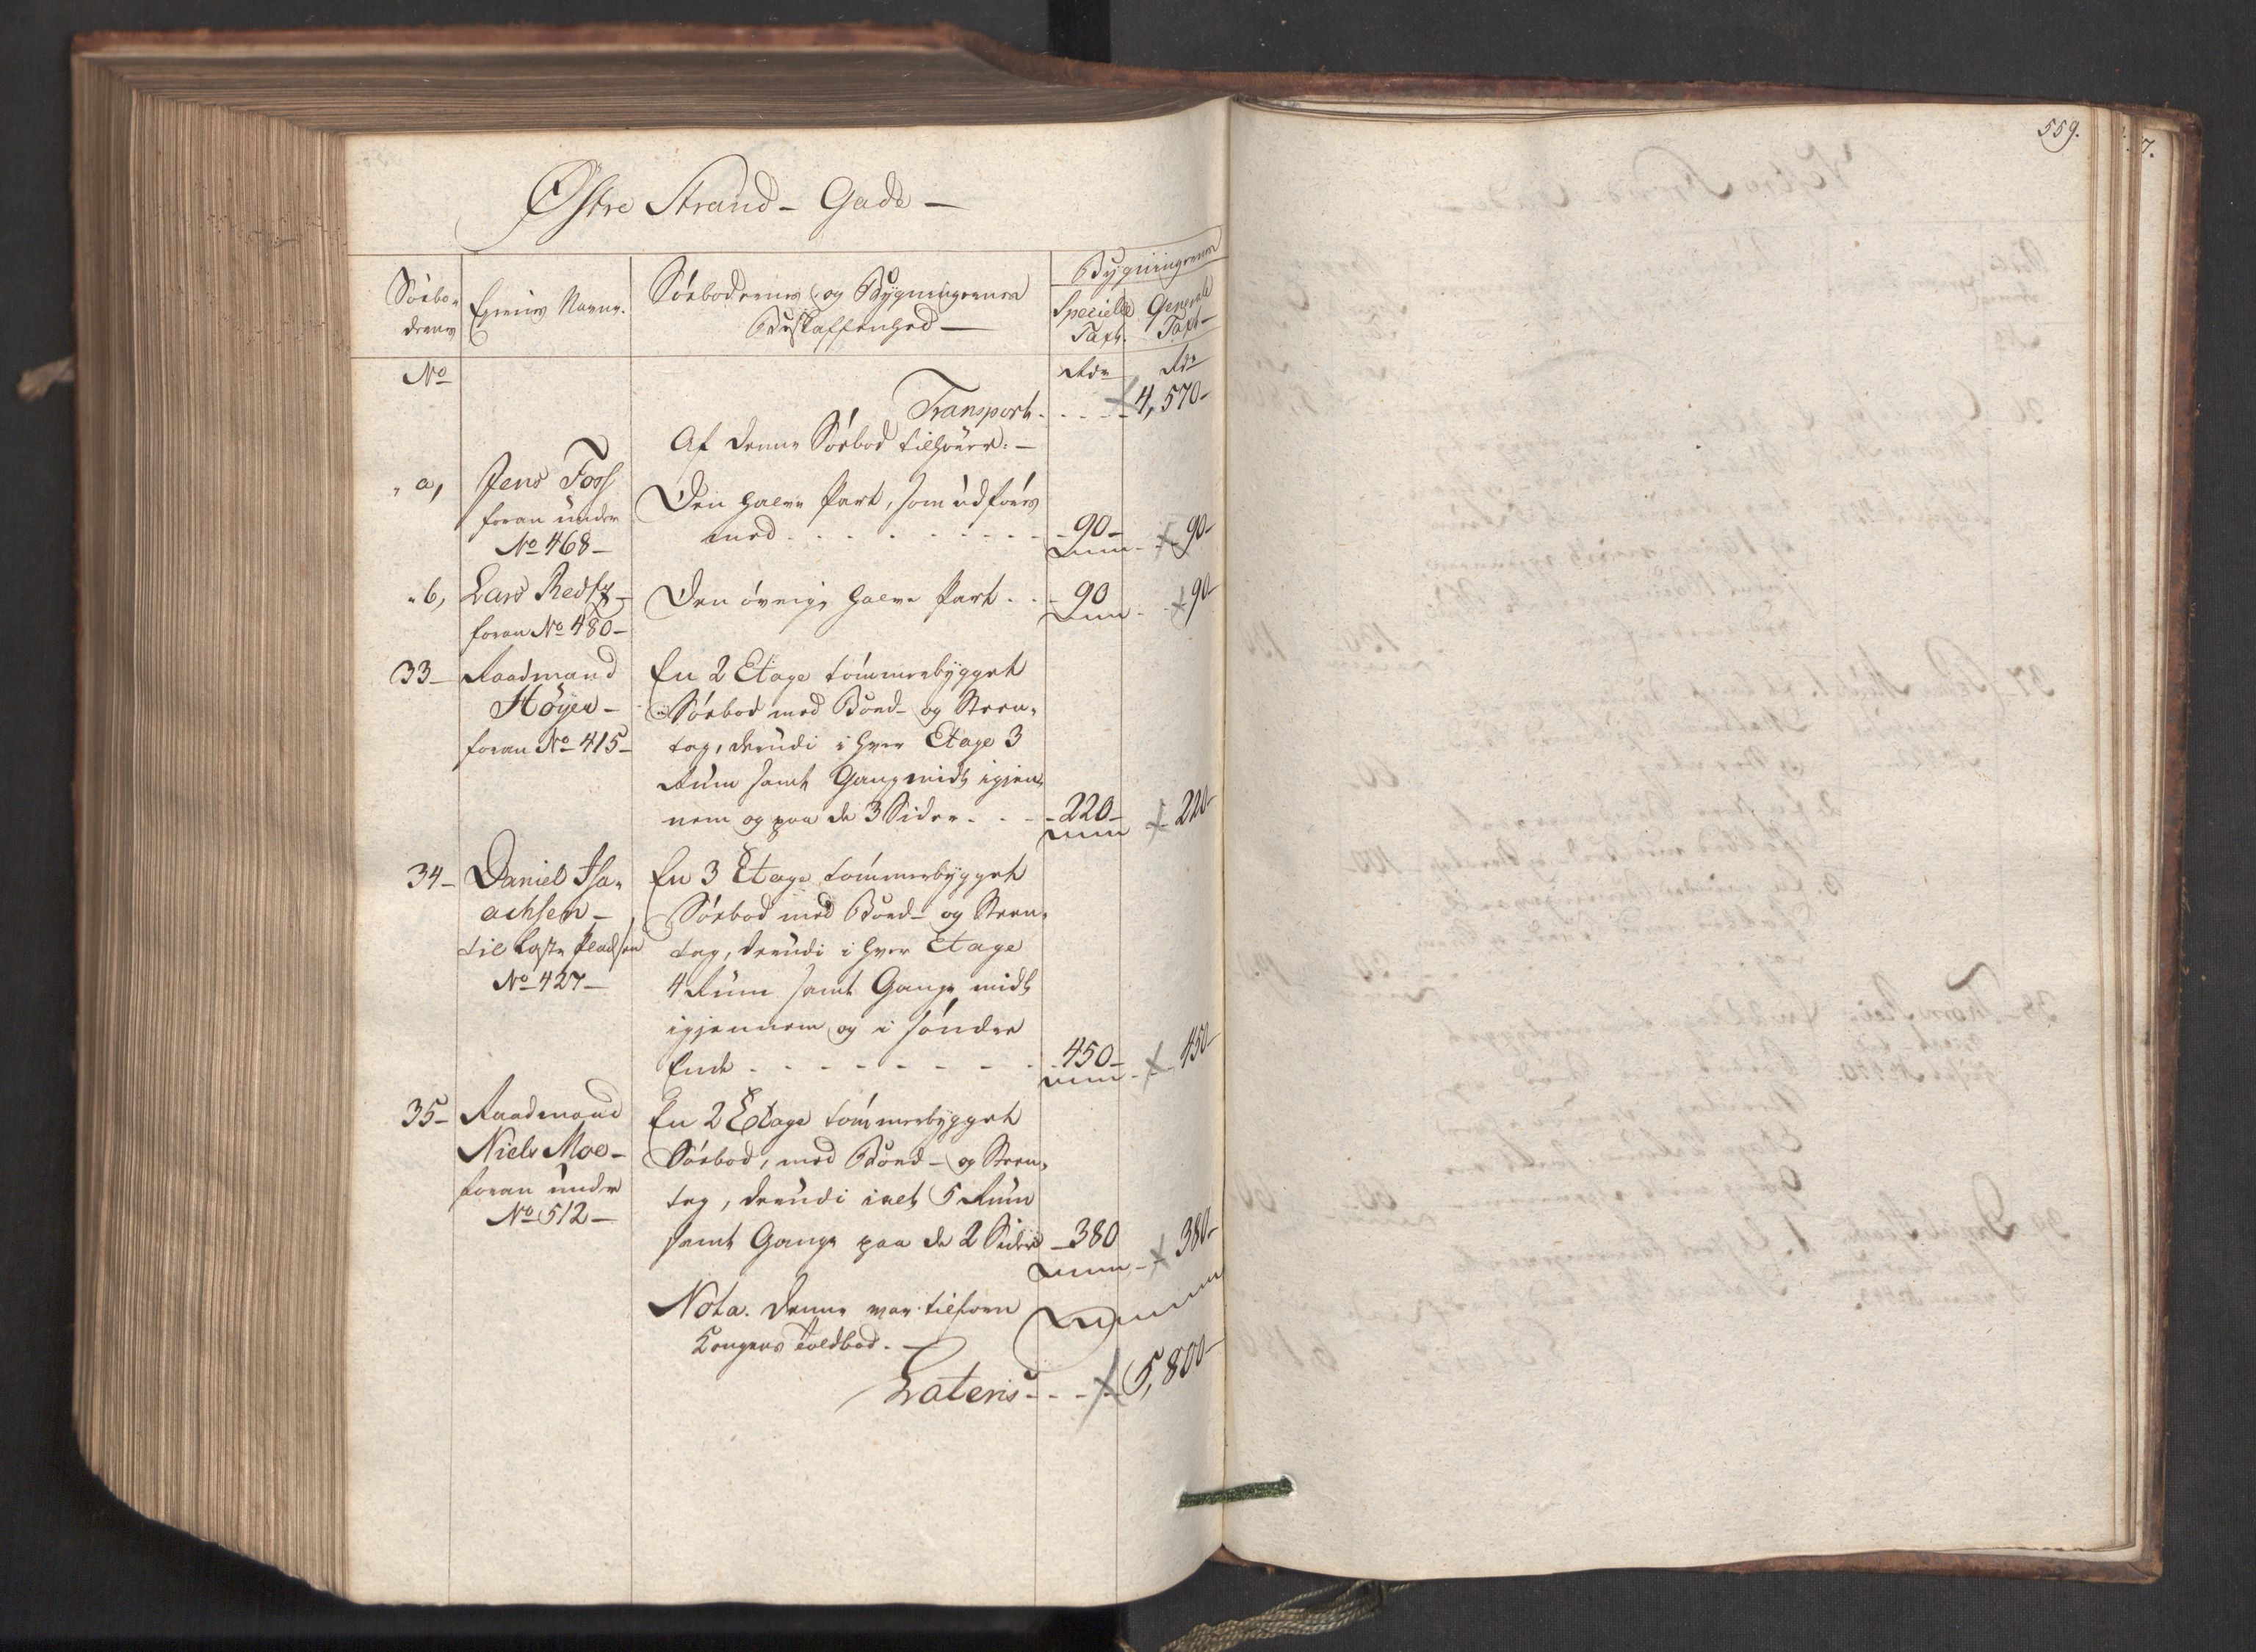 559.
7.
Østre Strand-Gade-
Søebodernes
Eyernes Navne.
Søebodernes og Bygningernes
Beskaffenhed-
Bygningernes
Specielle Taxt.
Generale Taxt-
No
Rdr
Rdr
Transport. - - - 4,570-
Af denne Søebod tilhører:-
" a, Jens Foss
foran under
No 468-
Den halve Part, som udføres
med - - - - - 90- - - 90-
" b, Lars Redtz-
foran No 480-
Den øvrige halve Part - - 90 - - 90-
33- Raadmand
Høyer-
foran No 415-
En 2 Etage tømmerbygget
Søebod med Bord- og Steen-
tag, derudi i hver Etage 3
Rum samt Gang midt igien-
nem og paa de 3 Sider - - - 220- - 220-
34- Daniel Isa-
achsen-
til Pladsen
No 427-
En 3 Etage tømmerbygget
Søebod med Bord- og Steen-
tag, derudi i hver Etage
4 Rum samt Gange midt
igjennem og i søndre
Ende - - - - - - 450- - - 450-
35- Raadmand
Niels Moe-
foran under
No 512-
En 2 Etage tømmerbygget
Søebod, med Bord- og Steen-
tag, derudi i alt 5 Rum
samt Gange paa de 2 Sider - 380 - - 380-
Nota. Denne var tilforn
Kongens Toldbod. -
Lateris - - - 5,800-